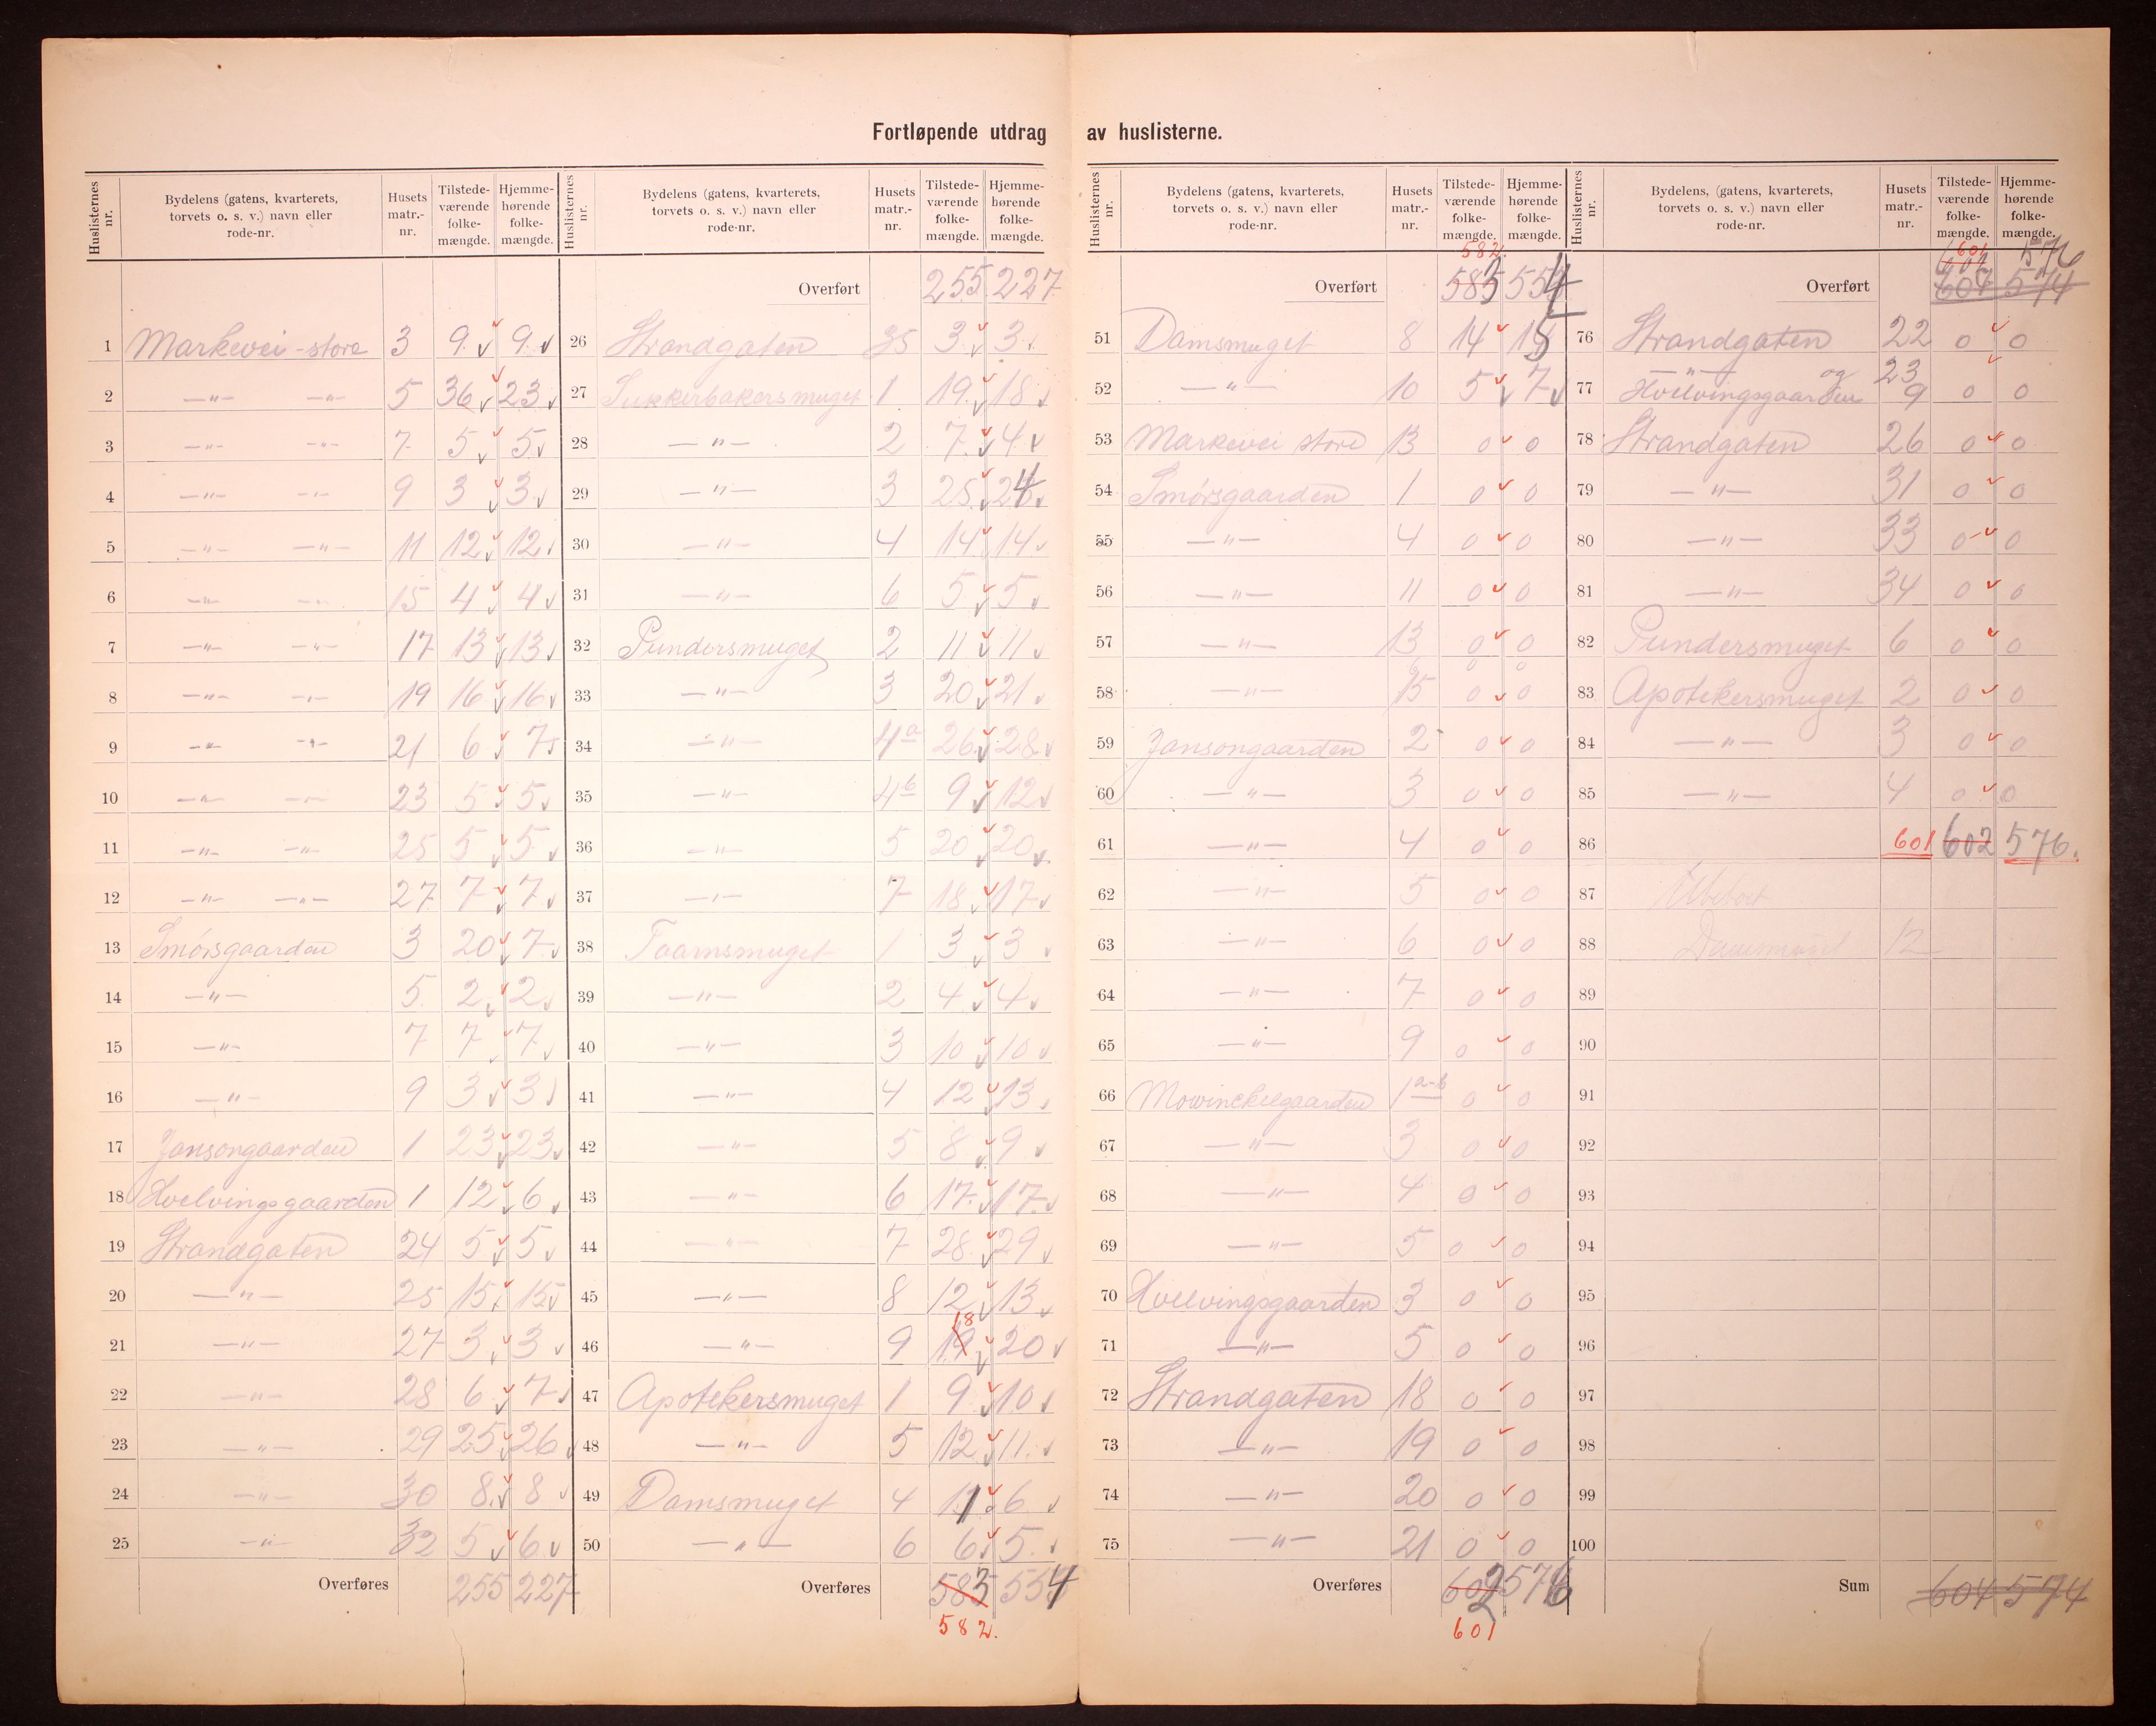 Fortløpende utdrag av huslisterne.
Huslisternes nr. Bydelens (gatens, kvarterets, torvets o. s. v.) navn eller rode-nr. Husets matr.-nr. Tilstede-værende folke-mængde. Hjemme-hørende folke-mængde.
1 Markevei - store 3 9 9
2 —"— —"— 5 36 23
3 —"— —"— 7 5 5
4 —"— —"— 9 3 3
5 —"— —"— 11 12 12
6 —"— —"— 15 4 4
7 —"— —"— 17 13 13
8 —"— —"— 19 16 16
9 —"— —"— 21 6 7
10 —"— —"— 23 5 5
11 —"— —"— 25 5 5
12 —"— —"— 27 7 7
13 Smørsgaarden 3 20 7
14 —"— 5 2 2
15 —"— 7 7 7
16 —"— 9 3 3
17 Jansongaarden 1 23 23
18 Hvelvingsgaarden 1 12 6
19 Strandgaten 24 5 5
20 —"— 25 15 15
21 —"— 27 3 3
22 —"— 28 6 7
23 —"— 29 25 26
24 —"— 30 8 8
25 —"— 32 5 6
Overføres 255 227
Huslisternes nr. Bydelens (gatens, kvarterets, torvets o. s. v.) navn eller rode-nr. Husets matr.-nr. Tilstede-værende folke-mængde. Hjemme-hørende folke-mængde.
Overført 255 227
26 Strandgaten 35 3 3
27 Sukkerbakersmuget 1 19 18
28 —"— 2 7 4
29 —"— 3 25 24
30 —"— 4 14 14
31 —"— 6 5 5
32 Pundersmuget 2 11 11
33 —"— 3 20 21
34 —"— 4a 26 28
35 —"— 4b 9 12
36 —"— 5 20 20
37 —"— 7 18 17
38 Taarnsmuget 1 3 3
39 —"— 2 4 4
40 —"— 3 10 10
41 —"— 4 12 13
42 —"— 5 8 9
43 —"— 6 17 17
44 —"— 7 28 29
45 —"— 8 12 13
46 —"— 9 19 18 20
47 Apotekersmuget 1 9 10
48 —"— 5 12 11
49 Damsmuget 4 11 6
50 —"— 6 6 5
Overføres 583 554
582.
Huslisternes nr. Bydelens (gatens, kvarterets, torvets o. s. v.) navn eller rode-nr. Husets matr.-nr. Tilstede-værende folke-mængde. Hjemme-hørende folke-mængde.
582.
Overført 583 554
51 Damsmuget 8 14 15
52 —"— 10 5 7
53 Markevei store 13 0 0
54 Smørsgaarden 1 0 0
55 —"— 4 0 0
56 —"— 11 0 0
57 —"— 13 0 0
58 —"— 15 0 0
59 Jansongaarden 2 0 0
60 —"— 3 0 0
61 —"— 4 0 0
62 —"— 5 0 0
63 —"— 6 0 0
64 —"— 7 0 0
65 —"— 9 0 0
66 Mowinckelgaarden 1a-b 0 0
67 —"— 3 0 0
68 —"— 4 0 0
69 —"— 5 0 0
70 Hvelvingsgaarden 3 0 0
71 —"— 5 0 0
72 Strandgaten 18 0 0
73 —"— 19 0 0
74 —"— 20 0 0
75 —"— 21 0 0
Overføres 602 576
601
Huslisternes nr. Bydelens, (gatens, kvarterets, torvets o. s. v.) navn eller rode-nr. Husets matr.-nr. Tilstede-værende folke-mængde. Hjemme-hørende folke-mængde.
601 576
Overført 604 574
76 Strandgaten 22 0 0
77 —"— og 23
Hvelvingsgaarden 9 0 0
78 Strandgaten 26 0 0
79 —"— 31 0 0
80 —"— 33 0 0
81 —"— 34 0 0
82 Pundersmuget 6 0 0
83 Apotekersmuget 2 0 0
84 —"— 3 0 0
85 —"— 4 0 0
86 601 602 576.
87 Ubeboet
88 Damsmuget 12
89
90
91
92
93
94
95
96
97
98
99
100
Sum 604 574